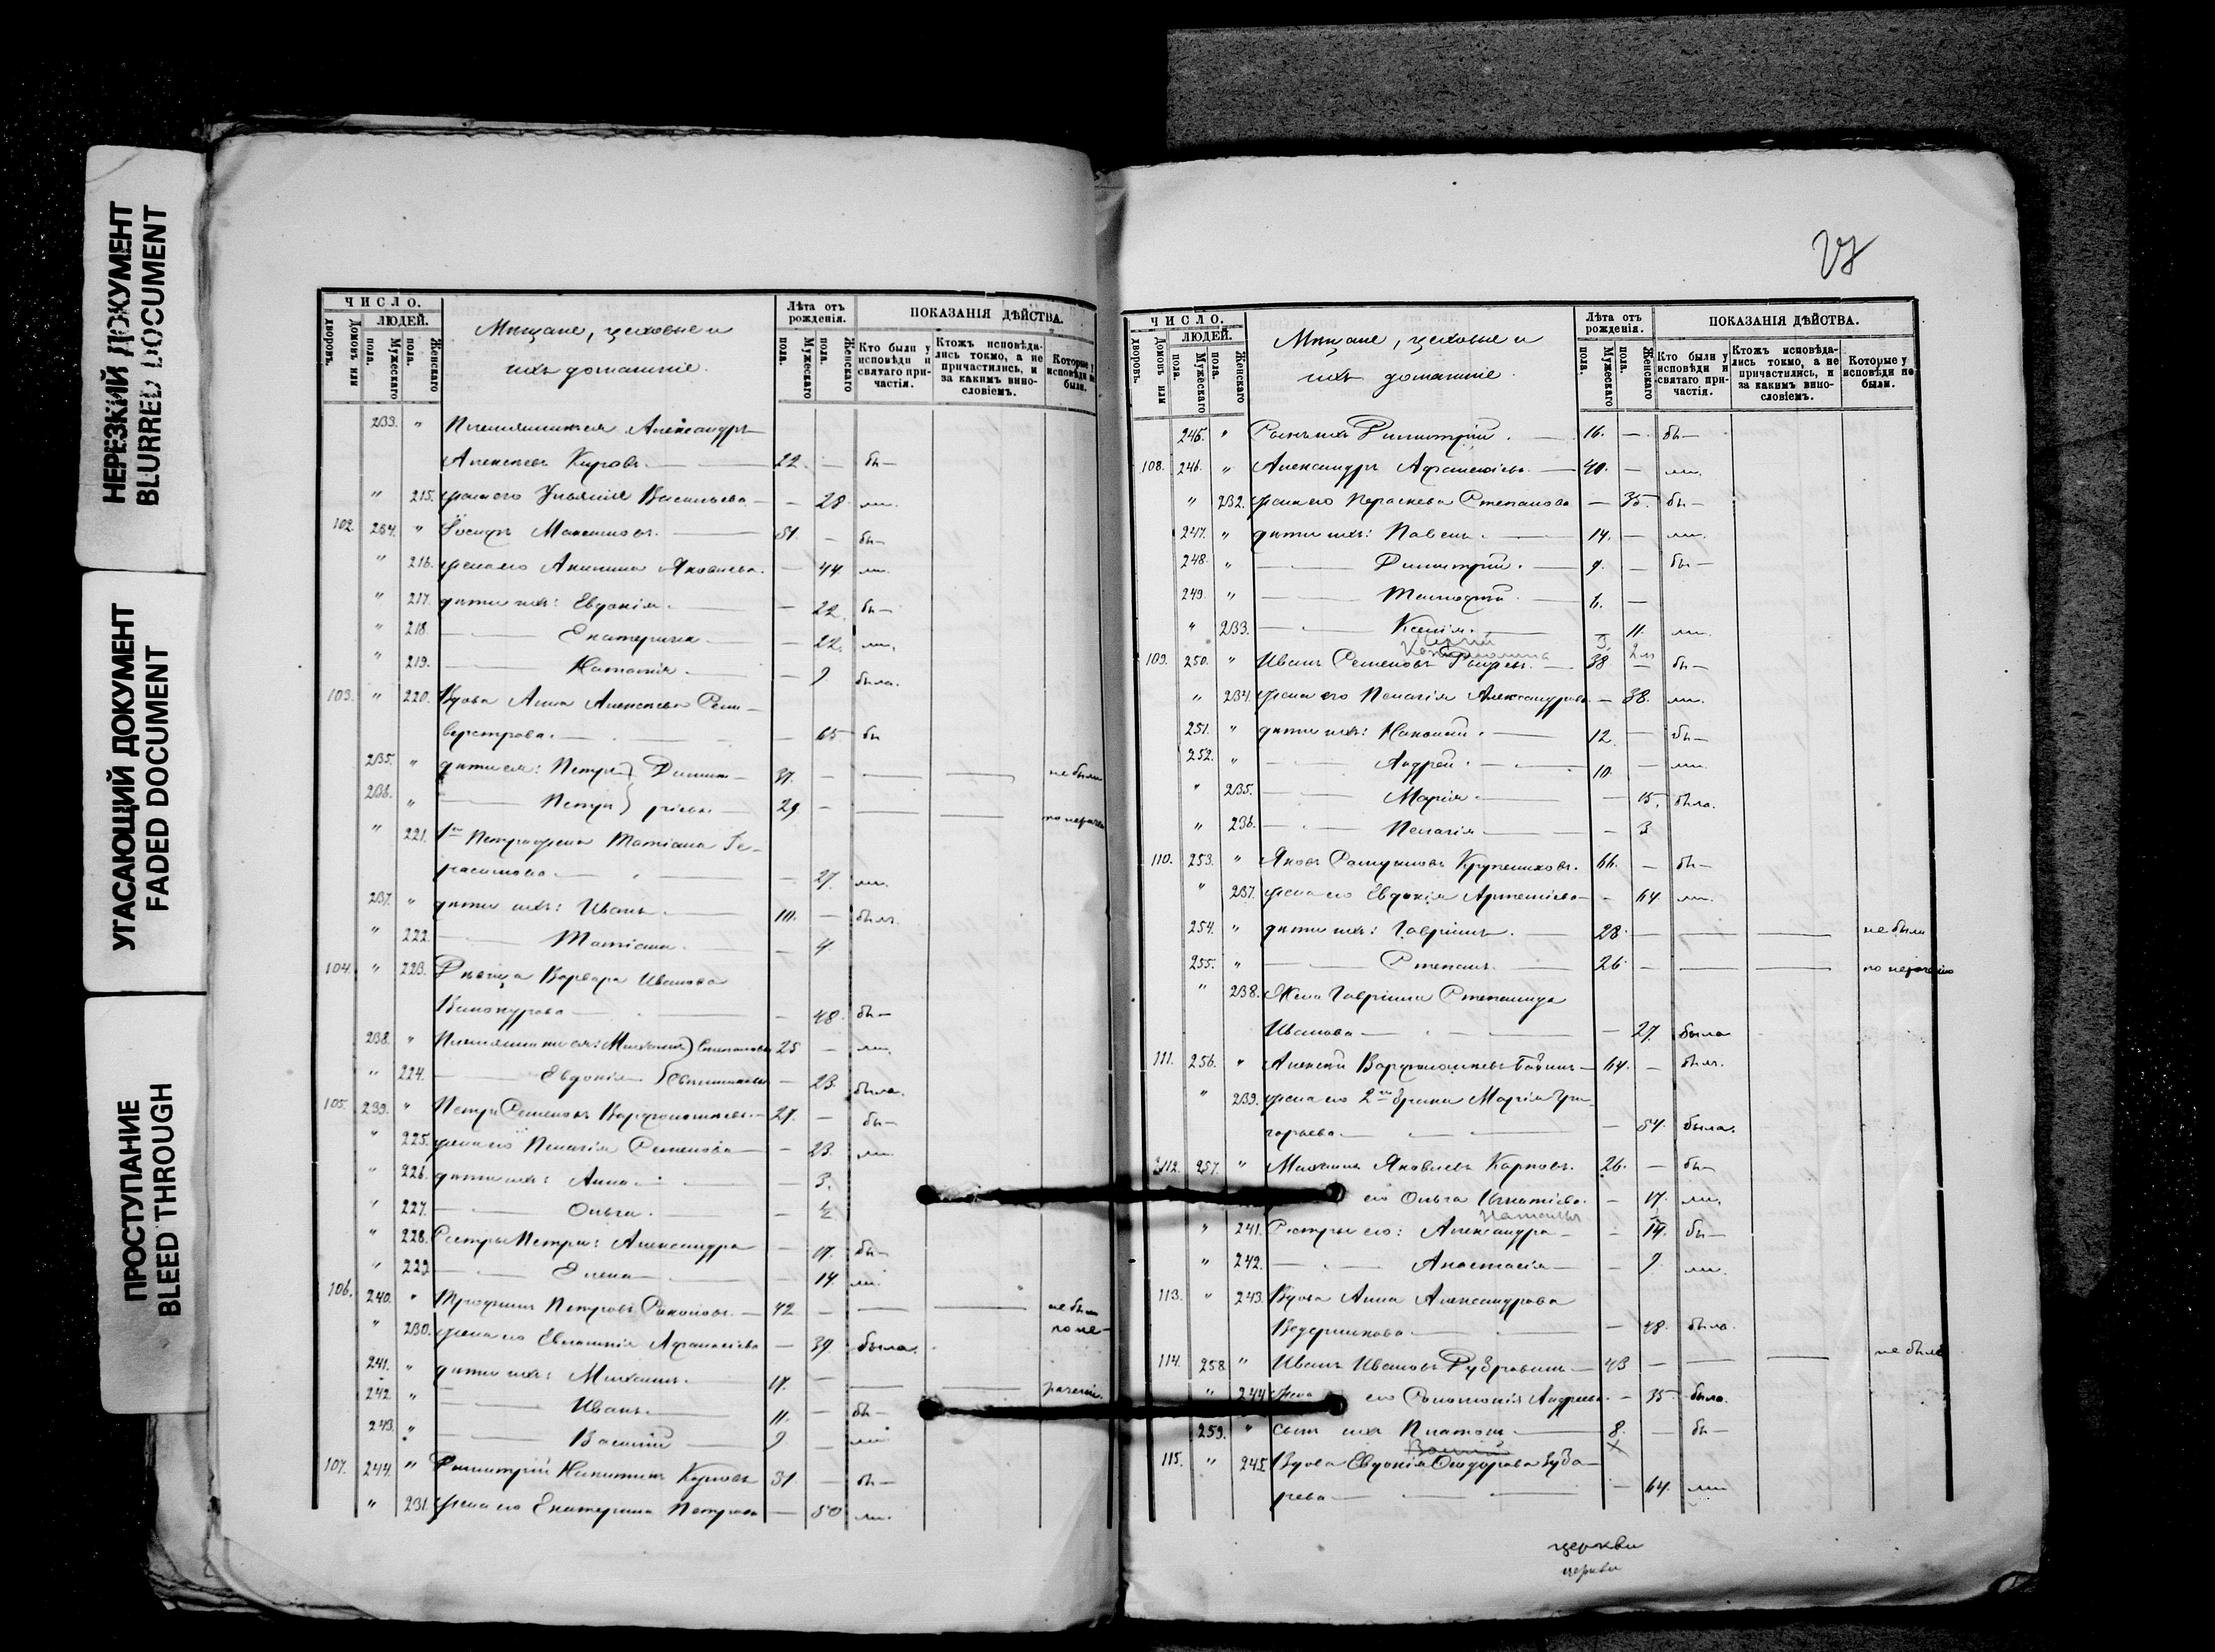 НЕРЕЗКИЙ ДОКУМЕНТ
BLURRED DOCUMENT
УГАСАЮЩИЙ ДОКУМЕНТ
FADED DOCUMENT
ПРОСТУПАНИЕ
BLEED THROUGH
ЧИСЛО.
Домовъ или дворовъ.
ЛЮДЕЙ.
Мужескаго пола.
Женскаго пола.
Мѣщане, цеховые и
ихъ домашніе.
Лѣта отъ рожденія.
Мужескаго пола.
Женскаго пола.
ПОКАЗАНІЯ ДѢЙСТВА.
Кто были у исповѣди и святаго причастія.
Ктожъ исповѣдались токмо, а не причастились, и за какимъ винословіемъ.
Которые у исповѣди не были.
233. " Александръ
Алексѣевъ Кировъ. 22. — бы—
" 215. жена его Ульянія Васильева — 28 ли.
102. 234. " Іосифъ Максимовъ. 51. — бы—
" 216. жена его Акилина Яковлева. — 44 ли.
" 217. дѣти ихъ: Евдокія. — 22. бы—
" 218. Екатерина — 22. ли.
" 219. Наталія. — 9 была.
103. " 220. Вдова Анна Алексѣева
— 65 бы
235. " дѣти ея: Петръ} Димит— 37. — не были
236. " Петръ} ріевы 29 — по нерач
" 221. 1го Петра жена Татіана Ге-
расимова — 27. ли.
237. " дѣти ихъ: Иванъ. 10. — былъ.
" 222. Татіана. — 4.
104. " 223. Дѣвица Варвара Иванова
Винокурова — 48. бы—
238. " Михаилъ} 25 — ли.
" 224. Евдокія — 23 была.
105. 239. " Петръ Семеновъ Варфоломѣевъ. 27. — бы—
" 225. жена его Пелагія Семенова — 23 ли.
" 226. дѣти ихъ: Анна — 3.
" 227. Ольга. — ½
" 228. Сестры Петра: Александра — 17. бы—
" 229 Елена — 14 ли.
106. 240. " Трофимъ Петровъ 42 — не были
" 230. жена его Евлампія Афанасіева — 39 была. по не-
241. " дѣти ихъ: Михаилъ. 17. — раченію.
242. " Иванъ. 11. — бы—
243. " Василій 9 — ли
107. 244. " Димитрій Никитинъ 31 — бы—
" 231. жена его Екатерина Петрова — 50 ли.
27
ЧИСЛО.
Домовъ или дворовъ.
ЛЮДЕЙ.
Мужескаго пола.
Женскаго пола.
Мѣщане, цеховые и
ихъ домашніе.
Лѣта отъ рожденія.
Мужескаго пола.
Женскаго пола.
ПОКАЗАНІЯ ДѢЙСТВА.
Кто были у исповѣди и святаго причастія.
Ктожъ исповѣдались токмо, а не причастились, и за какимъ винословіемъ.
Которые у исповѣди не были.
245. " Сынъ ихъ Димитрій. 16. — бы—
108. 246. " Александръ Афанасіевъ. 40. — ли.
" 232. жена его Параскева Степанова — 35. бы—
247. " дѣти ихъ: Павелъ. 14. — ли.
248. " Димитрій. 9. — бы—
249. " Тимофей. 6. —
" 233. Ксенія. — 11. ли.
109. 250. " Иванъ Семеновъ 38 — бы—
" 234. жена его Пелагія Александрова — 38. ли.
251. " дѣти ихъ: Николай. 12 — бы—
252. " Андрей. 10. — ли.
" 235. Марія. — 15. была.
" 236. Пелагія — 3
110. 253. " Яковъ Крупениковъ. 66. — бы—
" 237. жена его Евдокія Артеміева — 64. ли.
254. " дѣти ихъ: Гавріилъ. 28. — не были
255. " Степанъ. 26 — по нераченію
" 238. Жена Гавріила Степанида
Иванова — 27. была
111. 256. " Алексѣй Варфоломѣевъ Бабинъ 64. — былъ.
" 239. жена его 2го брака Марія Гри-
горьева — 54. была.
112. 257. " Михаилъ Яковлевъ Карповъ. 26. — бы—
его Ольга Игнатіева. — 17. ли.
Наталья
" 241. Сестры его: Александра — 14. бы—
" 242. Анастасія — 9. ли.
113. " 243. Вдова Анна Александрова
Ведерникова — 48. была.
114. 258. " Иванъ Ивановъ Дубровинъ 43 — не былъ
" 244. жена его Соломонія Андреева. — 35 была.
259. " Сынъ ихъ Платонъ. 8. — бы—
115. " 245. Вдова Евдокія Ѳеодорова Зуба-
рева — 64. ли
церкви
церкви